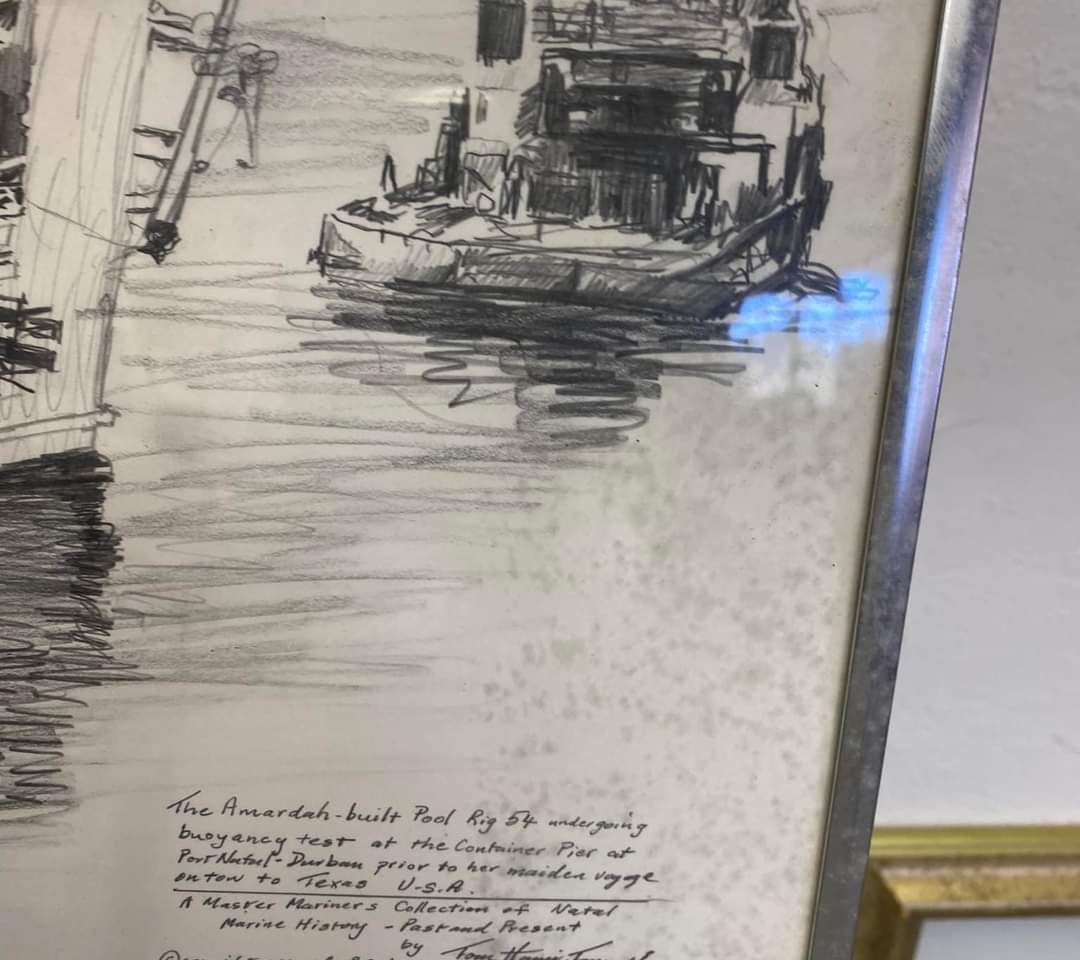 The Amardah-built Pool Rig 54 undergoing
buoyancy test at the Container Pier at
Port Natal - Durban prior to her maiden voyage
on tow to Texas U-S.A.
A Master Mariners Collection of Natal
Marine History - Past and Present
by Tom